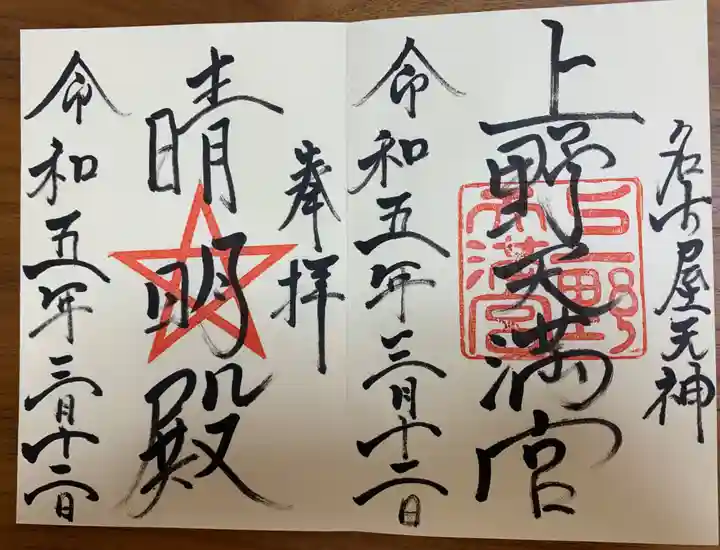 名古屋天神
上野天満宮
上野天満宮
令和五年三月十二日
奉拝
晴明殿
令和五年三月十二日